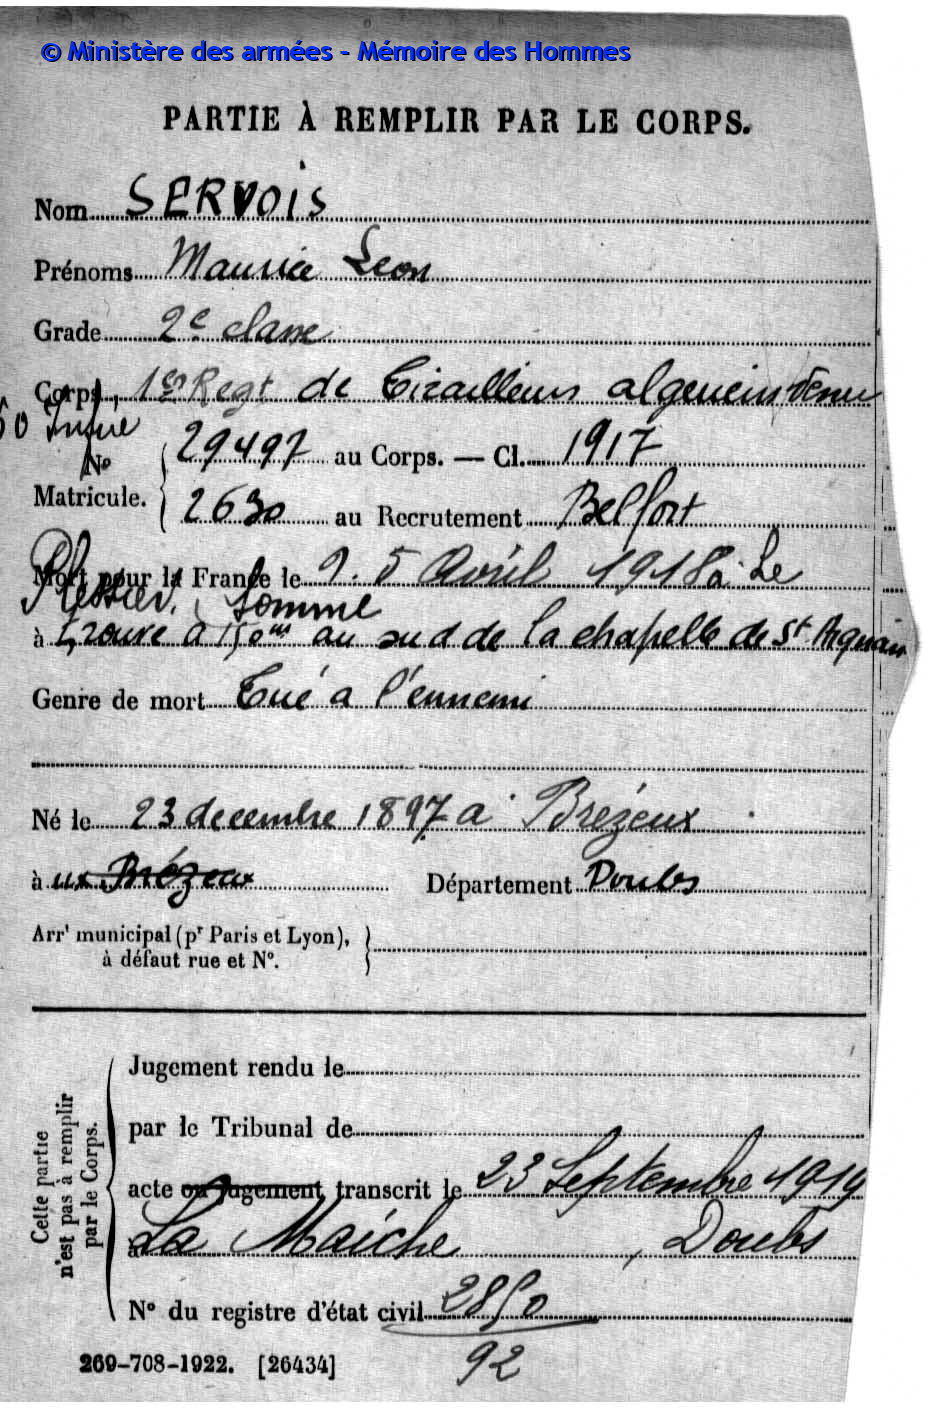 © Ministère des armées - Mémoire des Hommes
PARTIE À REMPLIR PAR LE CORPS.
Nom SERVOIS
Prénoms Maurice Leon
Grade 2e classe
Corps 1er Regt de Tirailleurs algerein
60 Infrie
No 29497 au Corps. — Cl. 1917
Matricule. 2630 au Recrutement Belfort
Mort pour la France le 2. 5 Avril 1918 à Le
Plessier. Somme
à Trouve a 150ms au sud de la chapelle de St Aignan
Genre de mort Tué a l'ennemi
Né le 23 decembre 1897 a Brézeux
à ux Brézeux Département Doubs
Arrt municipal (pr Paris et Lyon),
à défaut rue et N°.
Cette partie
n'est pas à remplir
par le Corps.
Jugement rendu le
par le Tribunal de
acte ou jugement transcrit le 23 Septembre 1919
à La Maiche, Doubs
N° du registre d'état civil 2850
92
269-708-1922. [26434]